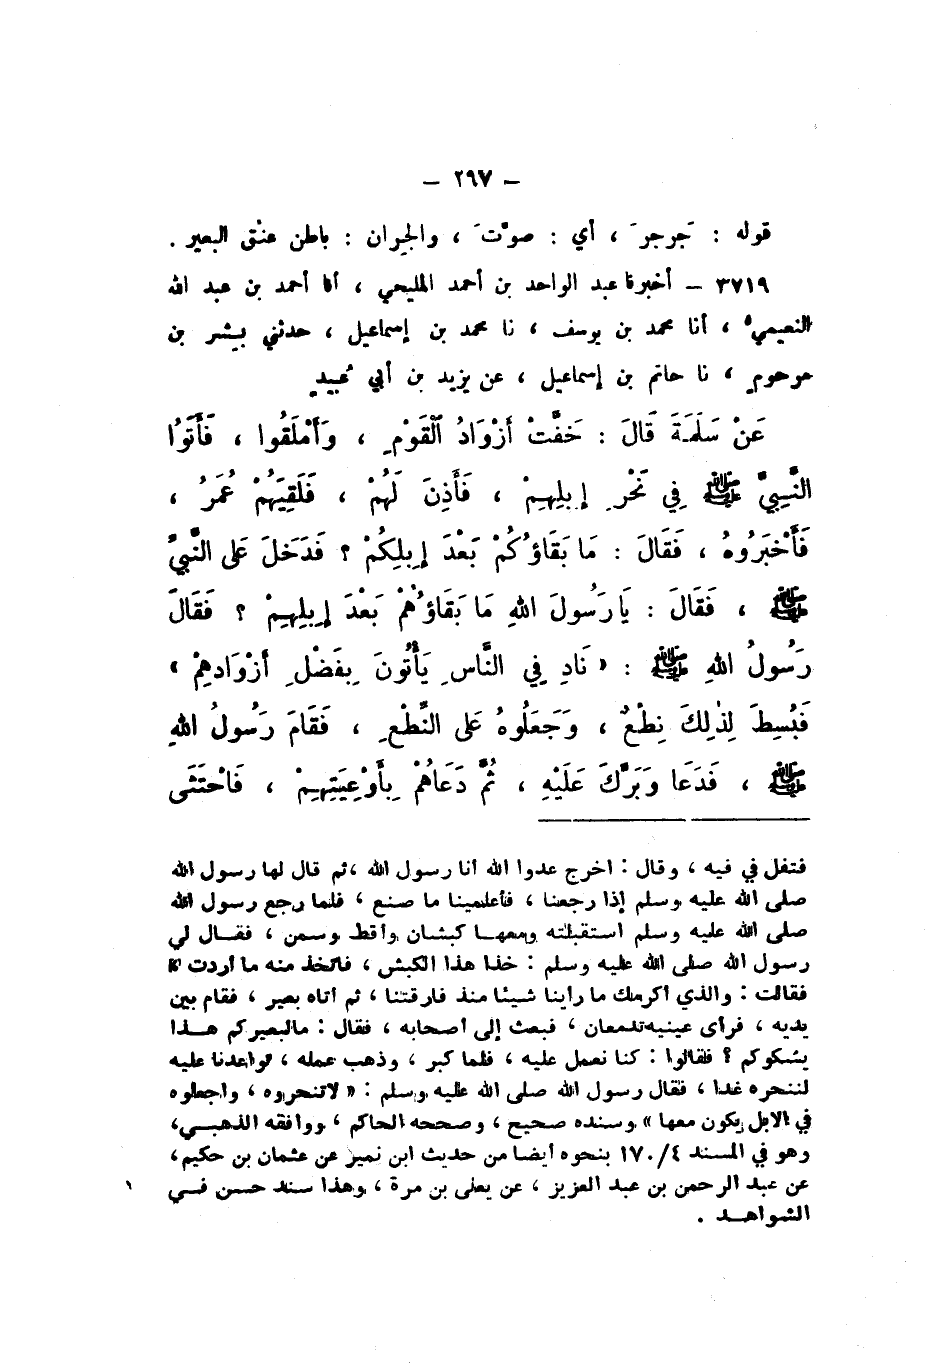 – ٢٩٧ –
قوله : جَرجرَ ، أي : صوّتَ ، والجِران : باطن عنْق البعير .
٣٧١٩ – أخبرنا عبد الواحد بن أحمد المليحي ، أنا أحمد بن عبد الله
النعيمي ، أنا محمد بن يوسف ، نا محمد بن إسماعيل ، حدثني بِشر بن
مرحومٍ ، نا حاتم بن إسماعيل ، عن يزيد بن أبي عُبيدٍ
عَنْ سَلَمَةَ قَالَ : خَفَّتْ أَزْوَادُ الْقَوْمِ ، وَأَمْلَقُوا ، فَأَتَوُا
النَّبِيَّ ﷺ فِي نَحْرِ إِبِلِهِمْ ، فَأَذِنَ لَهُمْ ، فَلَقِيَهُمْ عُمَرُ ،
فَأَخْبَرُوهُ ، فَقَالَ : مَا بَقَاؤُكُمْ بَعْدَ إِبِلِكُمْ ؟ فَدَخَلَ عَلَى النَّبِيِّ
ﷺ ، فَقَالَ : يَا رَسُولَ اللهِ مَا بَقَاؤُهُمْ بَعْدَ إِبِلِهِمْ ؟ فَقَالَ
رَسُولُ اللهِ ﷺ : « نَادِ فِي النَّاسِ يَأْتُونَ بِفَضْلِ أَزْوَادِهِمْ »
فَبُسِطَ لِذٰلِكَ نِطْعٌ ، وَجَعَلُوهُ عَلَى النِّطْعِ ، فَقَامَ رَسُولُ اللهِ
ﷺ ، فَدَعَا وَبَرَّكَ عَلَيْهِ ، ثُمَّ دَعَاهُمْ بِأَوْعِيَتِهِمْ ، فَاحْتَثَى
فتفل في فيه ، وقال : اخرج عدوا الله أنا رسول الله ، ثم قال لها رسول الله
صلى الله عليه وسلم إذا رجعنا ، فأعلمينا ما صنع ، فلما رجع رسول الله
صلى الله عليه وسلم استقبلته ومعها كبشان وأقط وسمن ، فقال لي
رسول الله صلى الله عليه وسلم : خذا هذا الكبش ، فاتخذ منه ما أردت »
فقالت : والذي أكرمك ما رأينا شيئا منذ فارقتنا ، ثم أتاه بعير ، فقام بين
يديه ، فرأى عينيه تدمعان ، فبعث إلى أصحابه ، فقال : مالبعيركم هذا
يشكوكم ؟ فقالوا : كنا نعمل عليه ، فلما كبر ، وذهب عمله ، تواعدنا عليه
لننحره غدا ، فقال رسول الله صلى الله عليه وسلم : « لاتنحروه ، واجعلوه
في الابل يكون معها » وسنده صحيح ، وصححه الحاكم ، ووافقه الذهبي ،
وهو في المسند ١٧٠/٤ بنحوه أيضا من حديث ابن نمير عن عثمان بن حكيم ،
عن عبد الرحمن بن عبد العزيز ، عن يعلى بن مرة ، وهذا سند حسن في
الشواهد .